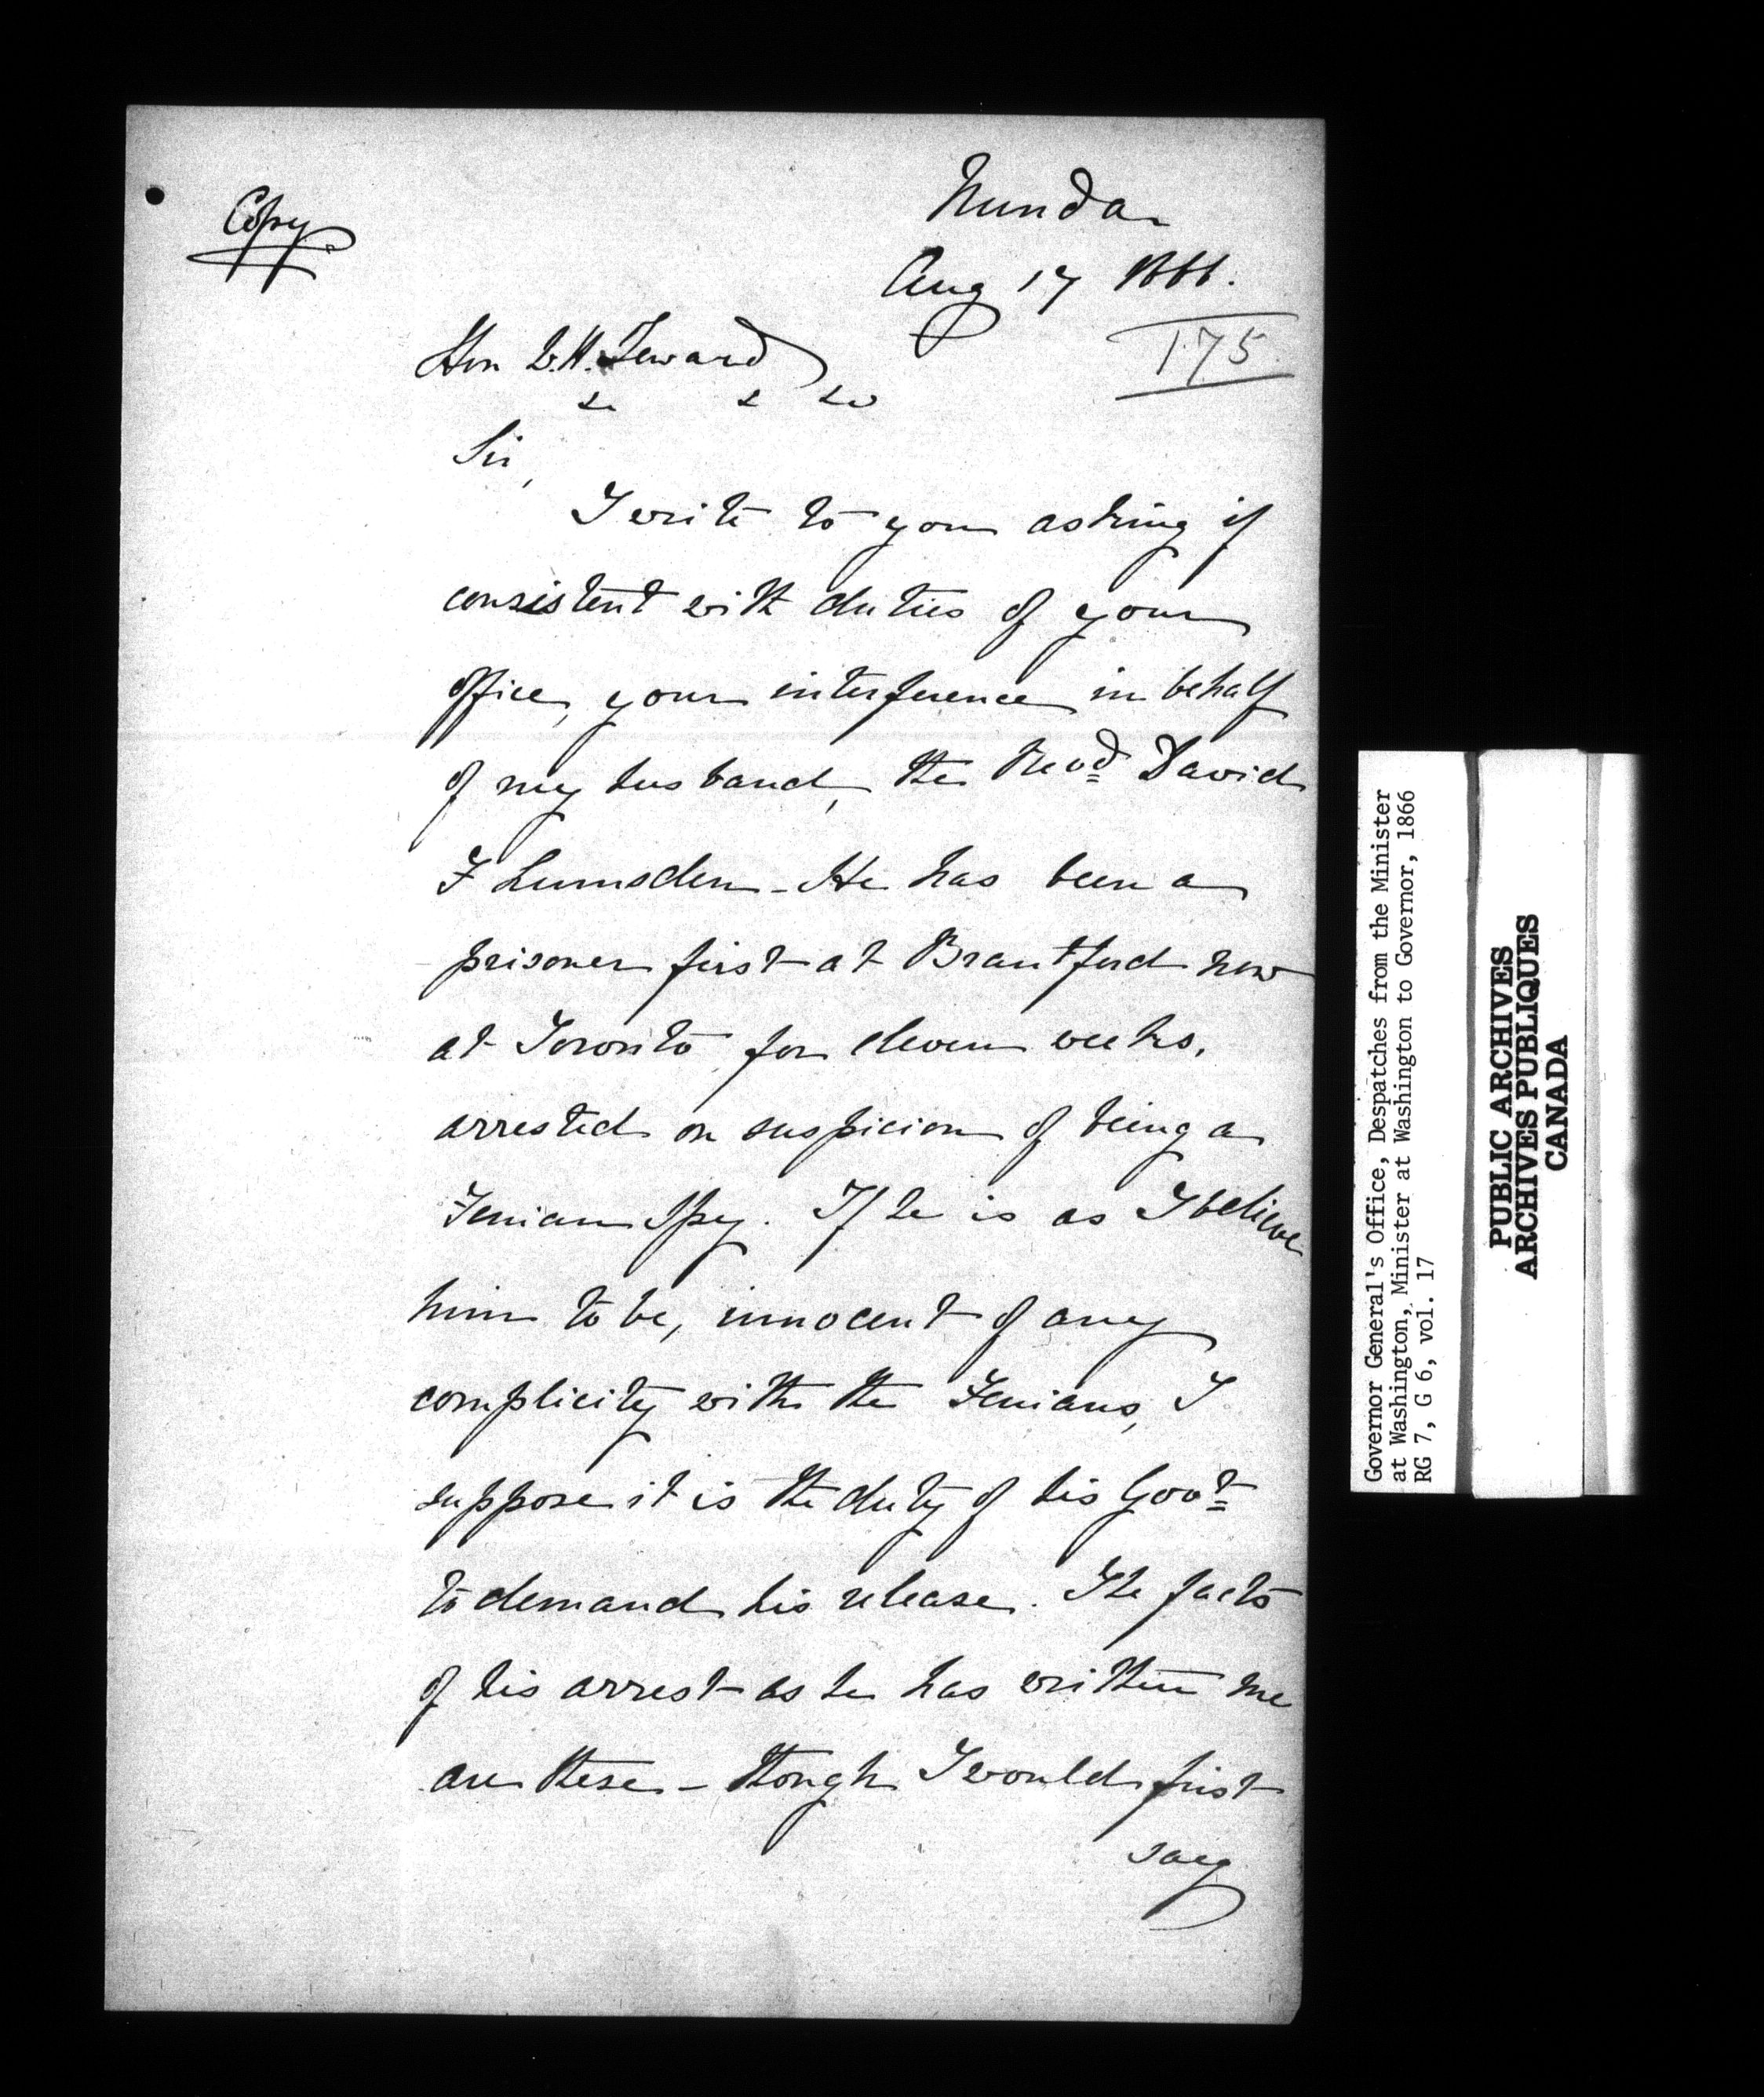 Copy
Nunda
Aug 17 1866.
175
Hon W.H. Seward
&c &c &c
Sir,
I write to you asking if
consistent with duties of your
office, your interference in behalf
of my husband, the Revd David
F Lumsden - He has been a
prisoner first at Brantford now
at Toronto for eleven weeks.
arrested on suspicion of being a
Fenian Spy. If he is as I believe
him to be, innocent of any
complicity with the Fenians, I
suppose it is the duty of his Govt
to demand his release. The facts
of his arrest as he has written me
are these - though I would first
say
Governor General's Office, Despatches from the Minister
at Washington, Minister at Washington to Governor, 1866
RG 7, G 6, vol. 17
PUBLIC ARCHIVES
ARCHIVES PUBLIQUES
CANADA